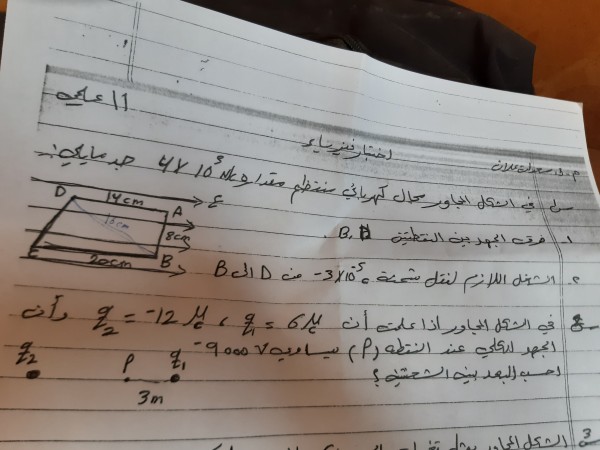 ١١ علمي
اختبار فيزياء
س١ في الشكل المجاور مجال كهربائي منتظم مقداره 4×10⁵ N/c جد مايلي:
D 14cm A E
10cm 8cm
C 20cm B
١. فرق الجهد بين النقطتين B, D
٢. الشغل اللازم لنقل شحنة -3×10⁻⁵ c من D الى B
في الشكل المجاور اذا علمت أن q₁ = 6 μc ، q₂ = -12 μc وأن
الجهد الكلي عند النقطة (P) يساوي -9000 V
احسب البعد بين الشحنتين ؟
q₂ P q₁
3m
س3 الشكل المجاور يمثل